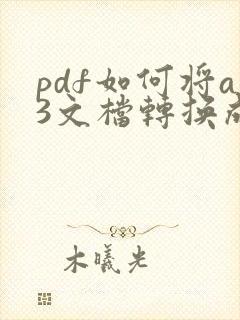 pdf如何将a
3文檔轉换成
木曦光